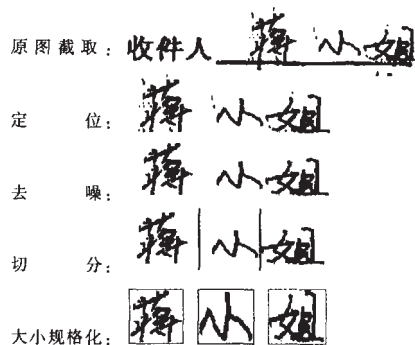 原图截取：收件人 蒋小姐
定位：蒋小姐
去噪：蒋小姐
切分：蒋小姐
大小规格化：蒋小姐